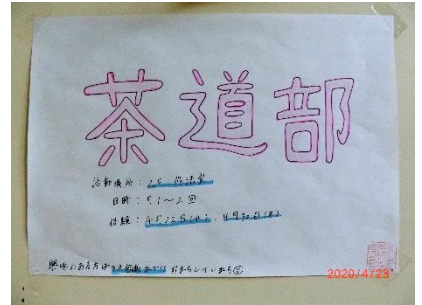 茶道部
活動場所：2F 作法室
日時：月1〜2回
体験：4月22日(水)、4月30日(木)
興味にある方は
お待ちしています
2020/4/23